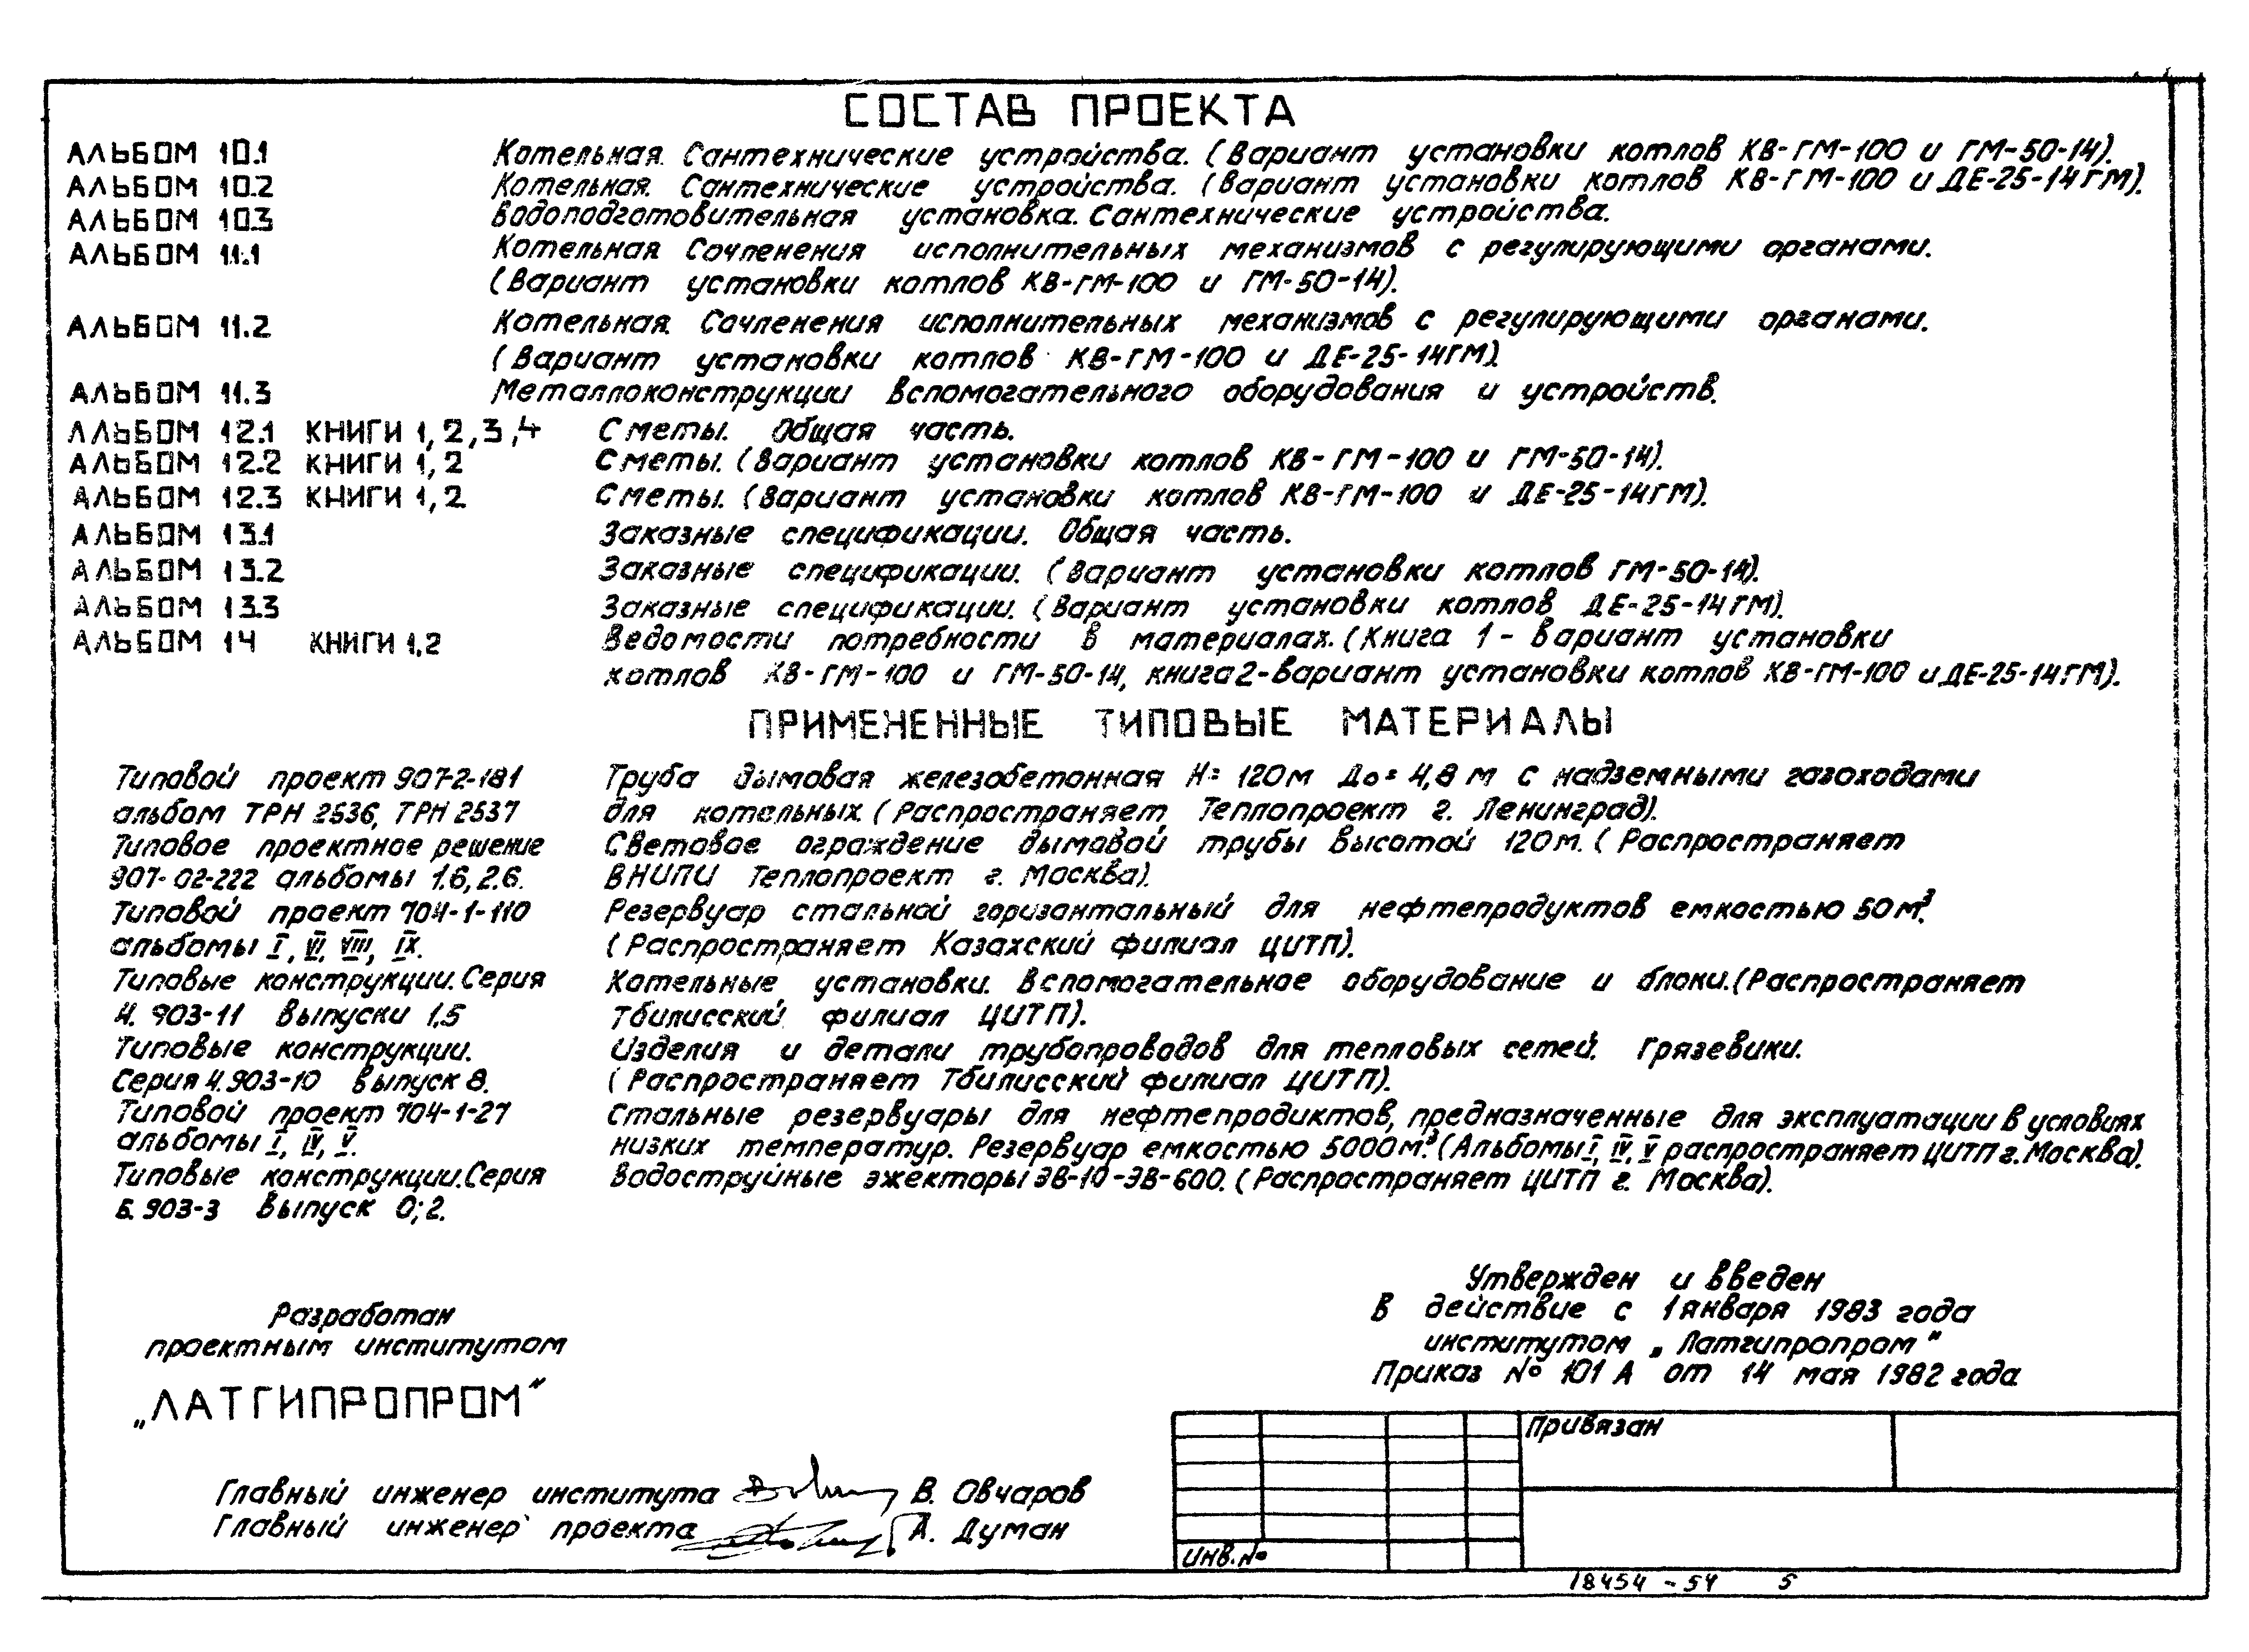 СОСТАВ ПРОЕКТА
АЛЬБОМ 10.1 Котельная. Сантехнические устройства. (Вариант установки котлов КВ-ГМ-100 и ГМ-50-14).
АЛЬБОМ 10.2 Котельная. Сантехнические устройства. (Вариант установки котлов КВ-ГМ-100 и ДЕ-25-14ГМ).
АЛЬБОМ 10.3 Водоподготовительная установка. Сантехнические устройства.
АЛЬБОМ 11.1 Котельная. Сочленения исполнительных механизмов с регулирующими органами.
(Вариант установки котлов КВ-ГМ-100 и ГМ-50-14).
АЛЬБОМ 11.2 Котельная. Сочленения исполнительных механизмов с регулирующими органами.
(Вариант установки котлов КВ-ГМ-100 и ДЕ-25-14ГМ)
АЛЬБОМ 11.3 Металлоконструкции вспомогательного оборудования и устройств.
АЛЬБОМ 12.1 КНИГИ 1,2,3,4 Сметы. Общая часть.
АЛЬБОМ 12.2 КНИГИ 1,2 Сметы. (Вариант установки котлов КВ-ГМ-100 и ГМ-50-14).
АЛЬБОМ 12.3 КНИГИ 1,2 Сметы. (Вариант установки котлов КВ-ГМ-100 и ДЕ-25-14ГМ).
АЛЬБОМ 13.1 Заказные спецификации. Общая часть.
АЛЬБОМ 13.2 Заказные спецификации. (Вариант установки котлов ГМ-50-14).
АЛЬБОМ 13.3 Заказные спецификации. (Вариант установки котлов ДЕ-25-14ГМ).
АЛЬБОМ 14 КНИГИ 1,2 Ведомости потребности в материалах. (Книга 1 - вариант установки
котлов КВ-ГМ-100 и ГМ-50-14, книга 2-вариант установки котлов КВ-ГМ-100 и ДЕ-25-14ГМ).
ПРИМЕНЕННЫЕ ТИПОВЫЕ МАТЕРИАЛЫ
Типовой проект 907-2-181 Труба дымовая железобетонная Н= 120м До= 4,8 м с надземными газоходами
альбом ТРН 2536, ТРН 2537 для котельных (Распространяет Теплопроект г. Ленинград).
Типовое проектное решение Световое ограждение дымовой трубы высотой 120м. (Распространяет
907-02-222 альбомы 1.6, 2.6. ВНИПИ Теплопроект г. Москва).
Типовой проект 704-1-110 Резервуар стальной горизонтальный для нефтепродуктов емкостью 50м³.
альбомы I, VI, VIII, IX. (Распространяет Казахский филиал ЦИТП).
Типовые конструкции. Серия Котельные установки. Вспомогательное оборудование и блоки. (Распространяет
4. 903-11 выпуски 1,5 Тбилисский филиал ЦИТП).
Типовые конструкции. Изделия и детали трубопроводов для тепловых сетей. Грязевики.
Серия 4.903-10 выпуск 8. (Распространяет Тбилисский филиал ЦИТП).
Типовой проект 704-1-27 Стальные резервуары для нефтепродиктов, предназначенные для эксплуатации в условиях
альбомы I, IV, V. низких температур. Резервуар емкостью 5000м³. (Альбомы I, IV, V распространяет ЦИТП г. Москва).
Типовые конструкции. Серия Водоструйные эжекторы ЭВ-10-ЭВ-600. (Распространяет ЦИТП г. Москва).
Б. 903-3 выпуск 0; 2.
Утвержден и введен
в действие с 1 января 1983 года
институтом „Латгипропром"
Приказ № 101 А от 14 мая 1982 года
Разработан
проектным институтом
„ЛАТГИПРОПРОМ"
Главный инженер института В. Овчаров
Главный инженер проекта А. Думан
Привязан
Инв. №
18454 - 54 5